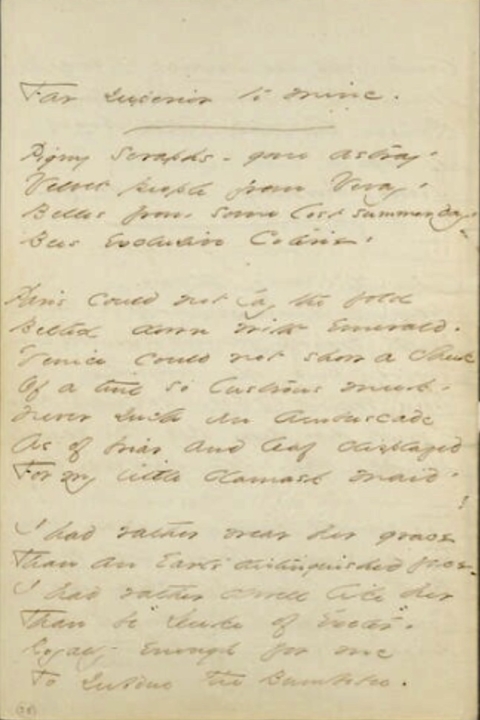 Far superior to mine.
Pigmy Seraphs - gone astray -
Velvet people from Vevay -
Belles from some lost summer day -
Bees Exclusive Coterie -
Paris could not lay the fold
Belted down with Emerald -
Venice could not show a cheek
Of a tint so lustrous meek -
Never such an Ambuscade
As of briar and leaf displayed
For my little damask maid -
!
I had rather wear her grace
Than an Earl's distinguished face -
I had rather dwell like her
Than be "Duke of Exeter" -
Royalty enough for me
To subdue the Bumblebee.